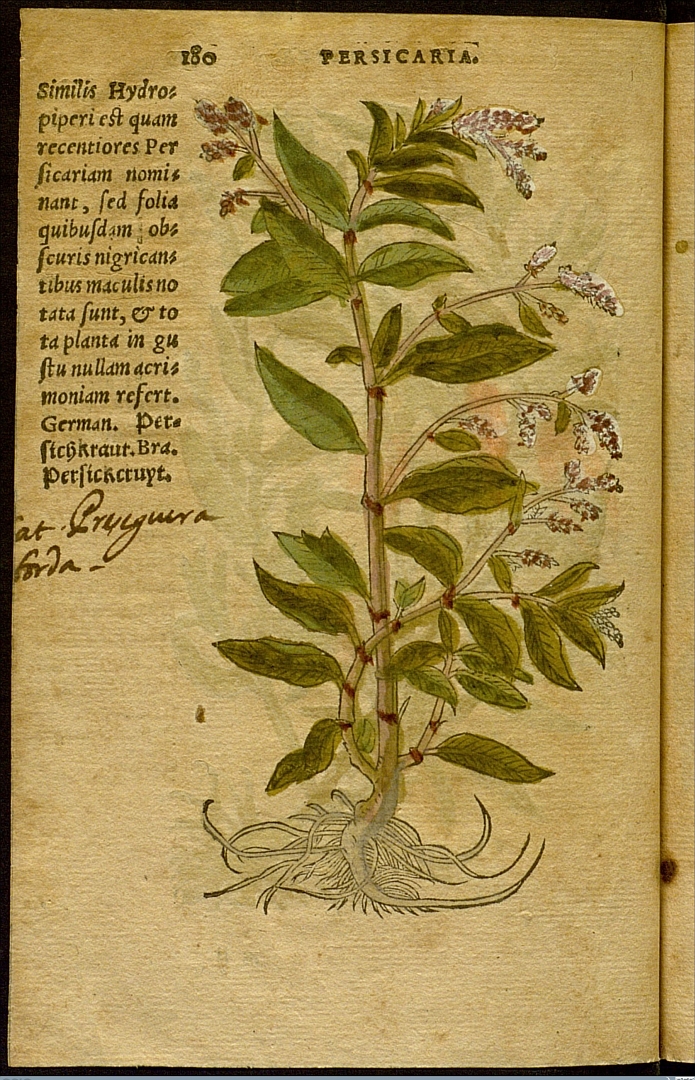 180 PERSICARIA.
Similis Hydro-
piperi est quam
recentiores Per
sicariam nomi-
nant, sed folia
quibusdam ob-
scuris nigrican-
tibus maculis no
tata sunt, & to
ta planta in gu
stu nullam acri-
moniam refert.
German. Per-
sichkraut. Bra.
Persickcruyt.
at. Preseguera
borda -